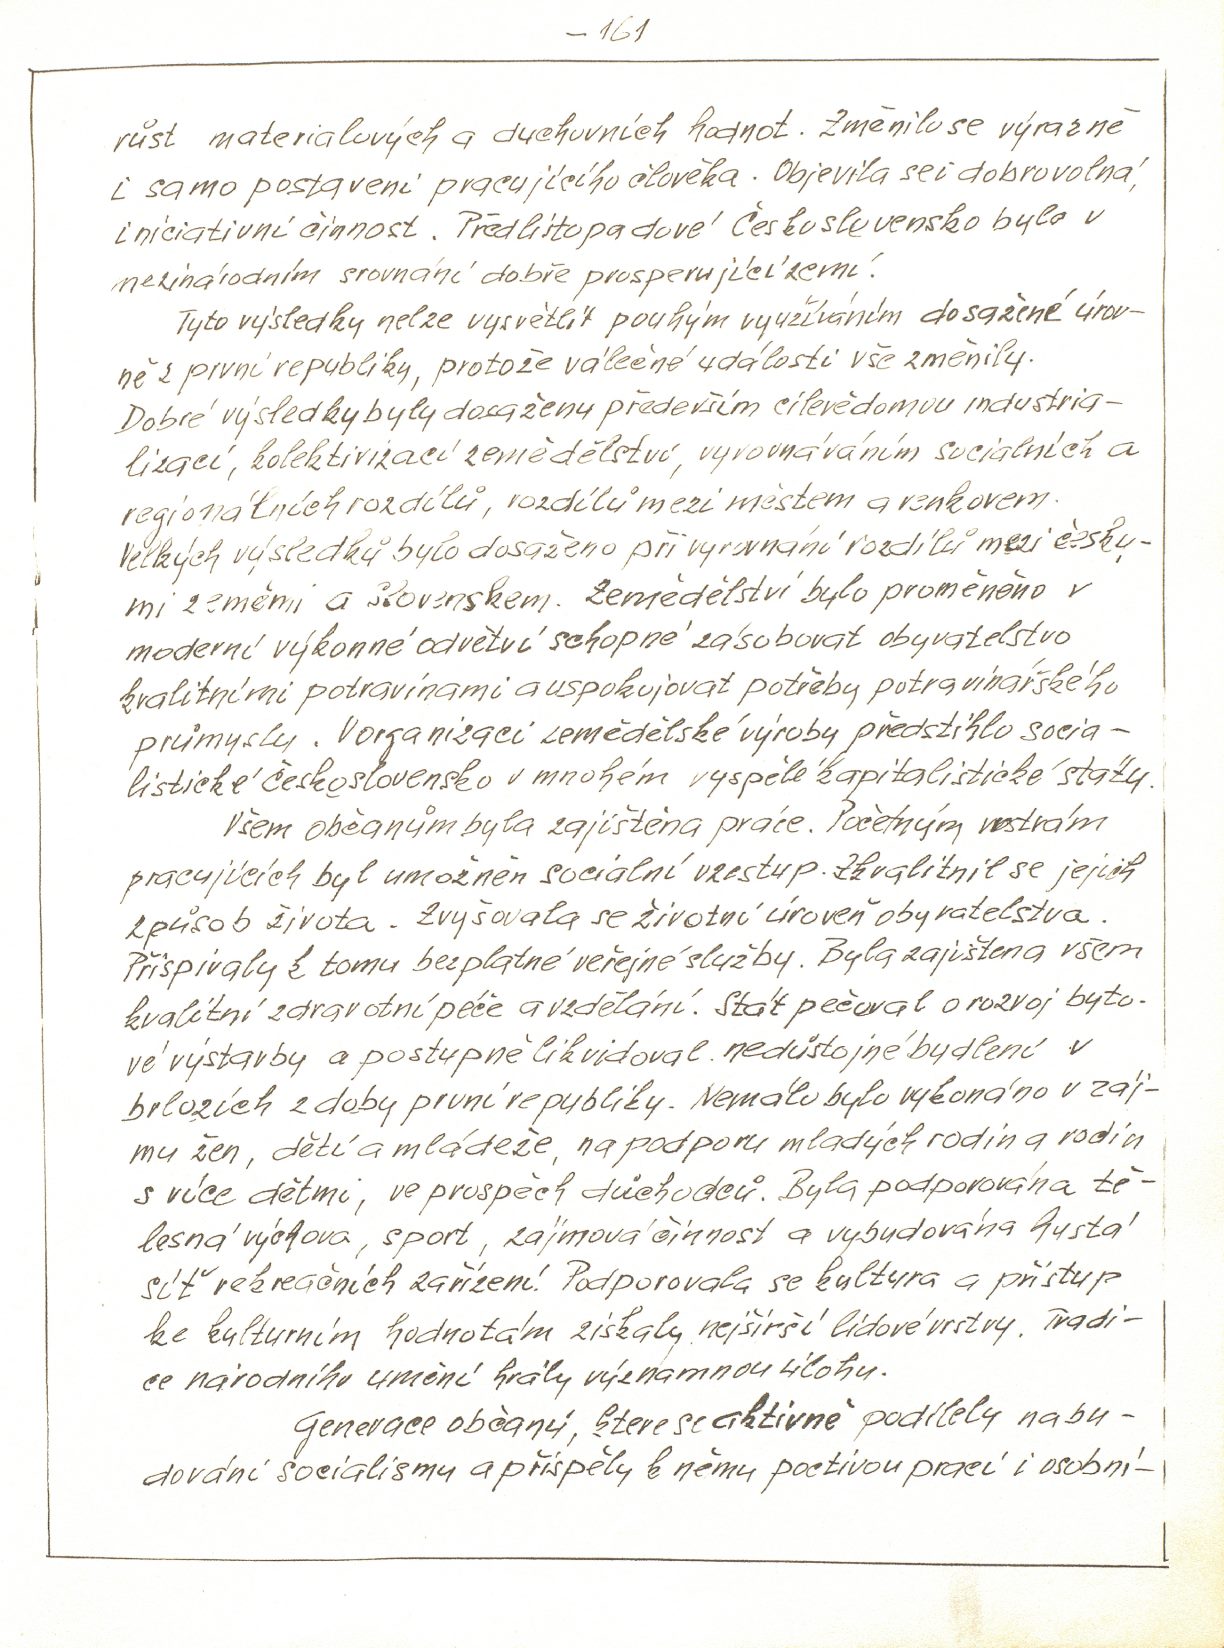 – 161
růst materialových a duchovních hodnot. Změnilo se výrazně
i samo postavení pracujícího člověka. Objevila se i dobrovolná,
iniciativní činnost. Předlistopadové Československo bylo v
mezinárodním srovnání dobře prosperující zemí.
Tyto výsledky nelze vysvětlit pouhým využíváním dosažené úrov–
ně z první republiky, protože válečné události vše změnily.
Dobré výsledky byly dosaženy především cílevědomou industria–
lizací, kolektivizací zemědělství, vyrovnáváním socialních a
regionálních rozdílů, rozdílů mezi městem a venkovem.
Velkých výsledků bylo dosaženo při vyrovnání rozdílů mezi český–
mi zeměmi a Slovenskem. Zemědělství bylo proměněno v
moderní výkonné odvětví schopné zásobovat obyvatelstvo
kvalitními potravinami a uspokojovat potřeby potravinářského
průmyslu. V organizaci zemědělské výroby předstihlo socia–
listické Československo v mnohém vyspělé kapitalistické státy.
Všem občanům byla zajištěna práce. Početným vrstvám
pracujících byl umožněn sociální vzestup. Zkvalitnil se jejich
způsob života. Zvyšovala se životní úroveň obyvatelstva.
Přispívaly k tomu bezplatné veřejné služby. Byla zajištena všem
kvalitní zdravotní péče a vzdělání. Stát pečoval o rozvoj byto–
vé výstavby a postupně likvidoval nedůstojné bydlení v
brlozích z doby první republiky. Nemálo bylo vykonáno v záj–
mu žen, dětí a mládeže, na podporu mladých rodin a rodin
s více dětmi, ve prospěch důchodců. Byla podporována tě–
lesná výchova, sport, zájmová činnost a vybudována hustá
síť rekreačních zařízení. Podporovala se kultura a přístup
ke kulturním hodnotám získaly nejširší lidové vrstvy. Tradi–
ce národního umění hrály významnou úlohu.
Generace občanů, ktere se aktivně podílely na bu–
dování socialismu a přispěly k němu poctivou prací i osobní–